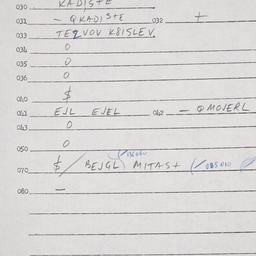 030 KADISTE
031 - QKADISTE 032 +
033 TEZVOV K8ISLEV
034 0
035 0
036 0
040 $
041 EJL EJEL 042 - QMOJERL
043 0
050 0
070 $/BEJGL MITAS+
080 -